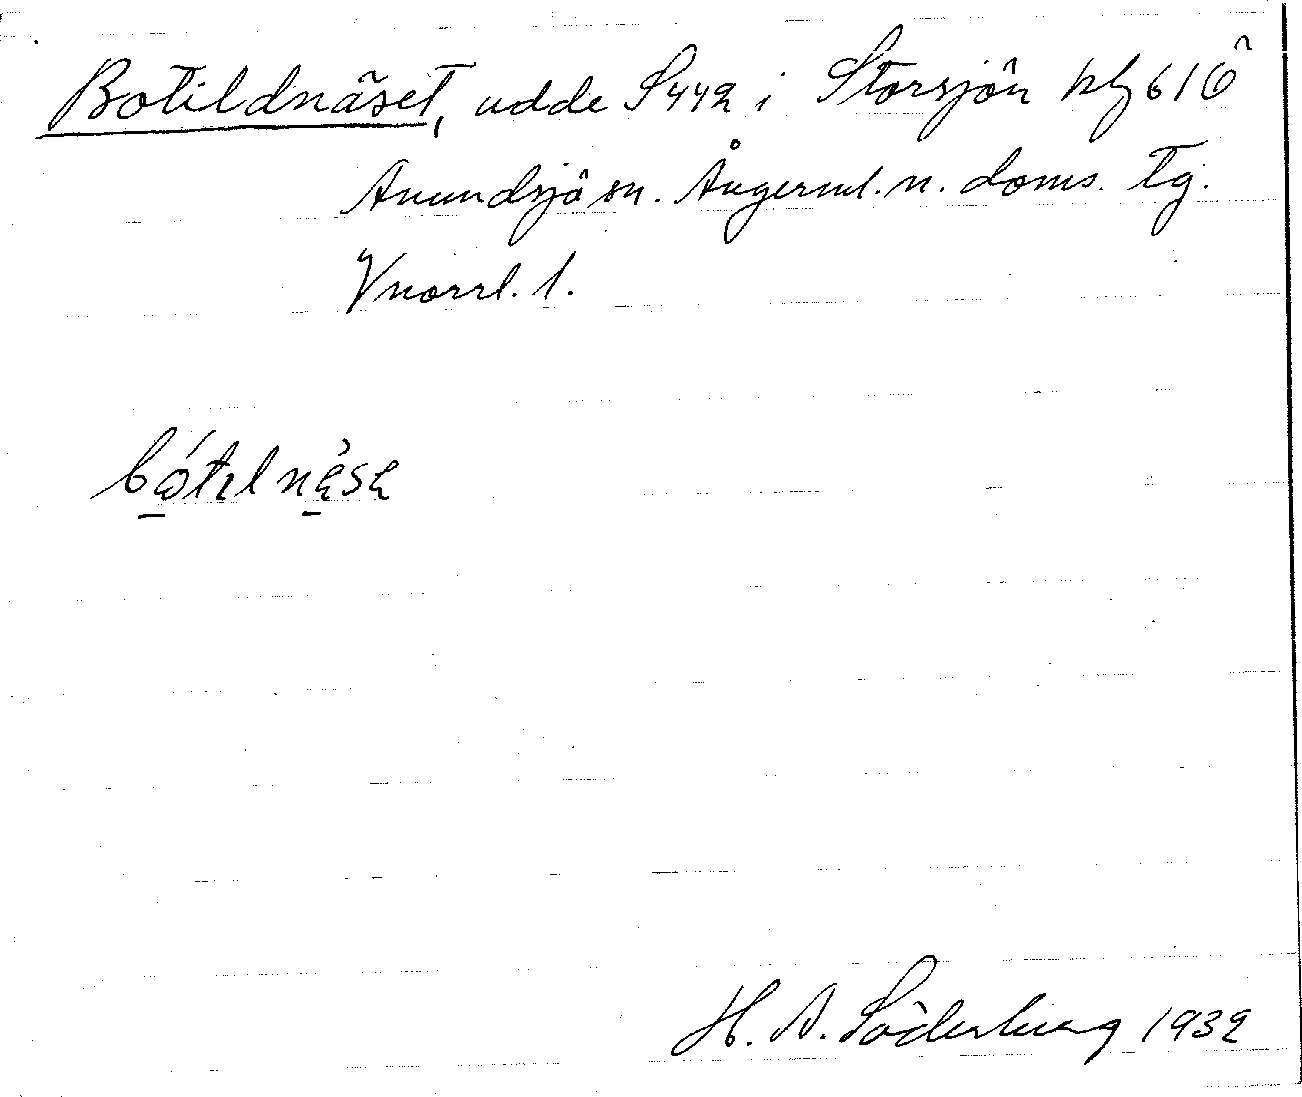 Botildnäset, udde S442 i Storsjön kbl 61Ö
Anundsjö sn. Ångerml. n. doms. Tg.
Vnorrl. l.
bo̱tɩlnä̱sä
H. A. Söderberg 1932